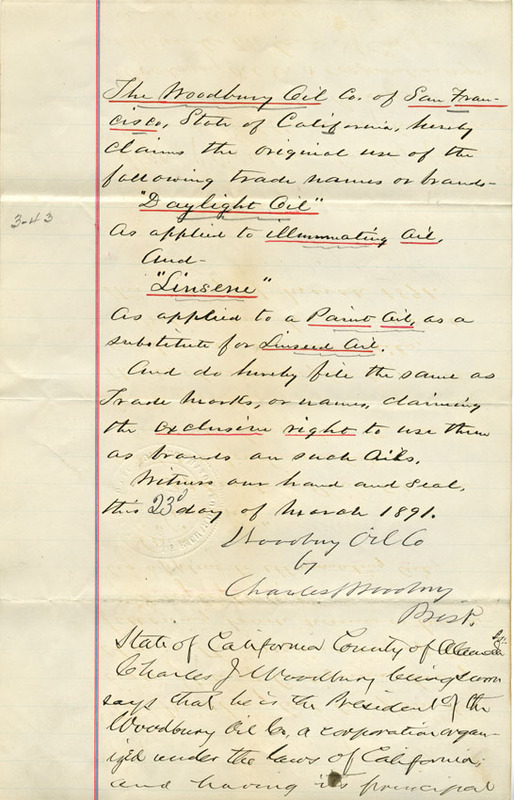 The Woodbury Oil Co. of San Fran-
cisco, State of California, hereby
claims the original use of the
following trade names or brands-
"Daylight Oil"
3-43
As applied to illuminating Oil,
And-
"Linsene"
As applied to a Paint Oil, as a
substitute for Linseed Oil.
And do hereby file the same as
Trade Marks, or names, claiming
the exclusive right to use them
as brands on such Oils.
Witness our hand and seal,
this 23d day of March 1891.
Woodbury Oil Co
by
Charles J Woodbury
Prest.
State of California County of Alameda ss.
Charles J. Woodbury being sworn
says that he is the President of the
Woodbury Oil Co, a corporation organ-
ized under the laws of California,
and having its principal